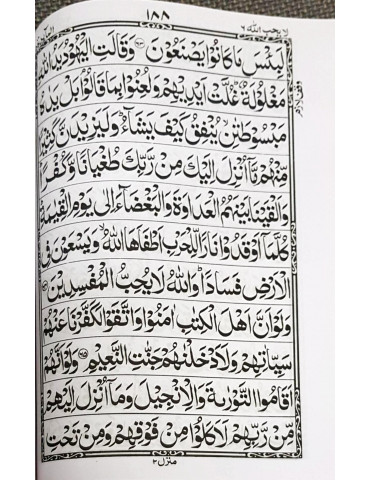 لا يحب الله ٦
١٨٨
لَبِئْسَ مَا كَانُوْا يَصْنَعُوْنَ ۝٦٣ وَقَالَتِ الْيَهُوْدُ يَدُ اللّٰهِ
مَغْلُوْلَةٌ ؕ غُلَّتْ اَيْدِيْهِمْ وَلُعِنُوْا بِمَا قَالُوْا ۘ بَلْ يَدٰهُ
مَبْسُوْطَتٰنِ ۙ يُنْفِقُ كَيْفَ يَشَآءُ ؕ وَلَيَزِيْدَنَّ كَثِيْرًا
مِّنْهُمْ مَّاۤ اُنْزِلَ اِلَيْكَ مِنْ رَّبِّكَ طُغْيَانًا وَّكُفْرًا ؕ
وَاَلْقَيْنَا بَيْنَهُمُ الْعَدَاوَةَ وَالْبَغْضَآءَ اِلٰى يَوْمِ الْقِيٰمَةِ ؕ
كُلَّمَاۤ اَوْقَدُوْا نَارًا لِّلْحَرْبِ اَطْفَاَهَا اللّٰهُ ۙ وَيَسْعَوْنَ فِى
الْاَرْضِ فَسَادًا ؕ وَاللّٰهُ لَا يُحِبُّ الْمُفْسِدِيْنَ ۝٦٤
وَلَوْ اَنَّ اَهْلَ الْكِتٰبِ اٰمَنُوْا وَاتَّقَوْا لَكَفَّرْنَا عَنْهُمْ
سَيِّاٰتِهِمْ وَلَاَدْخَلْنٰهُمْ جَنّٰتِ النَّعِيْمِ ۝٦٥ وَلَوْ اَنَّهُمْ
اَقَامُوا التَّوْرٰىةَ وَالْاِنْجِيْلَ وَمَاۤ اُنْزِلَ اِلَيْهِمْ
مِّنْ رَّبِّهِمْ لَاَكَلُوْا مِنْ فَوْقِهِمْ وَمِنْ تَحْتِ
منزل ٢
وقف لازم